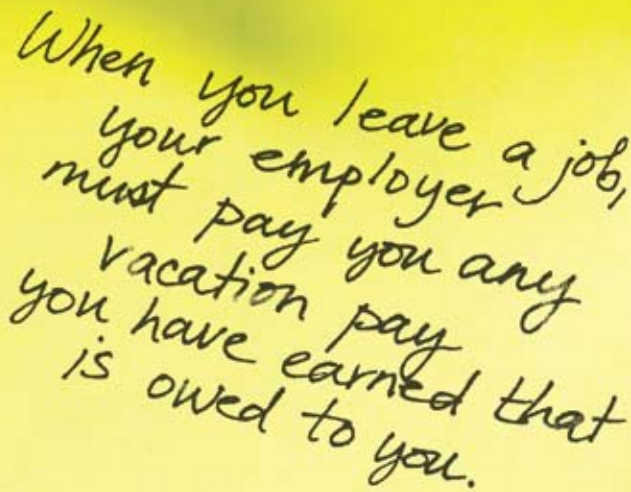 When you leave a job,
your employer
must pay you any
vacation pay
you have earned that
is owed to you.